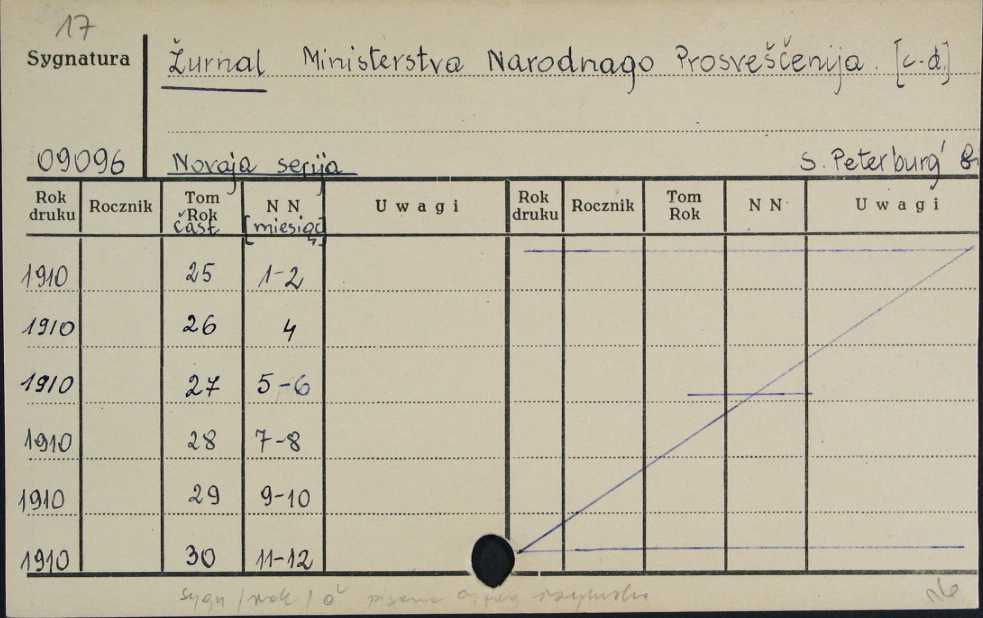 17
Sygnatura Žurnal Ministerstva Narodnago Prosveščenija. [c.d.]
09096 Novaja serija S. Peterburg'
Rok druku Rocznik Tom Rok čast' N N [miesiąc] Uwagi Rok druku Rocznik Tom Rok N N Uwagi
1910 25 1-2
1910 26 4
1910 27 5-6
1910 28 7-8
1910 29 9-10
1910 30 11-12
sygn / rok /